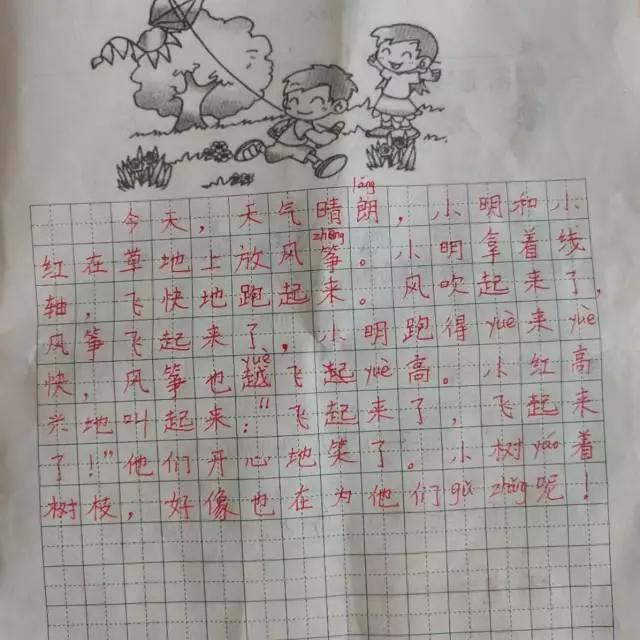 lǎng
今天，天气晴朗，小明和小
zhēng
红在草地上放风筝。小明拿着线
轴，飞快地跑起来。风吹起来了，
风筝飞起来了，小明跑得yuè来yuè
yuè
快，风筝也越飞起yuè高。小红高
兴地叫起来：“飞起来了，飞起来
了！”他们开心地笑了。小树yáo着
树枝，好像也在为他们gǔ zhǎng呢！